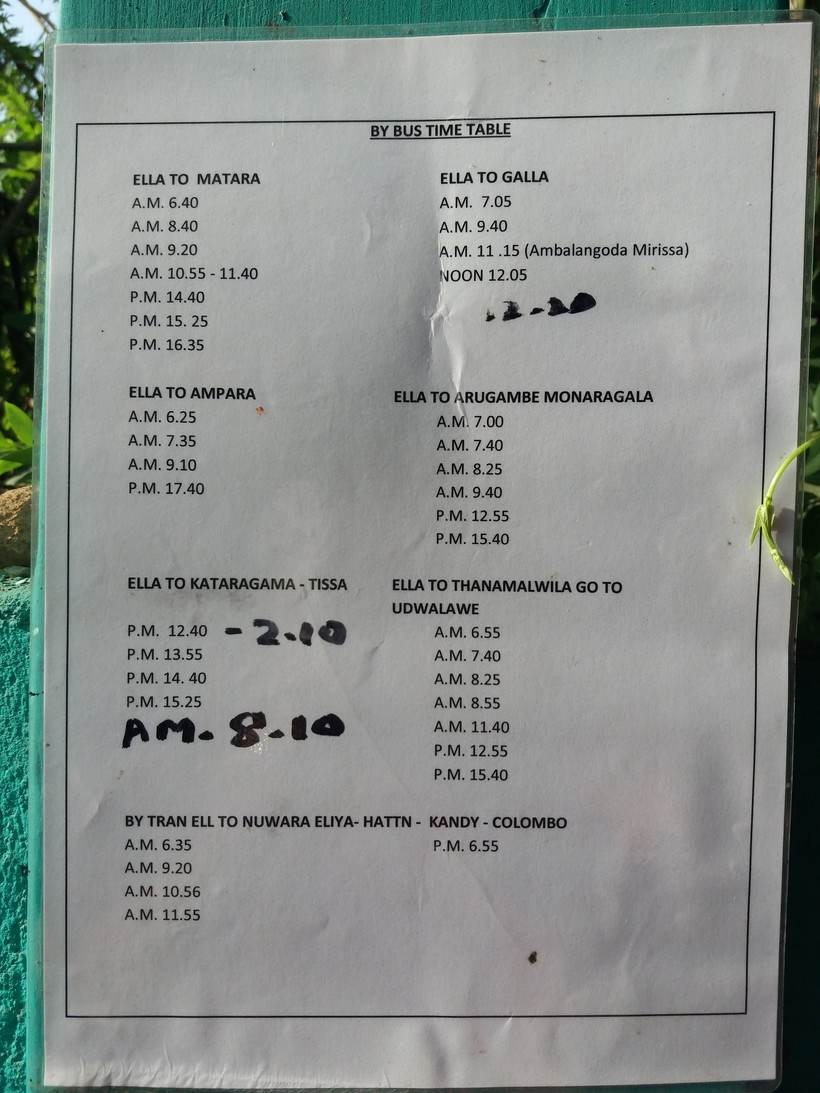 BY BUS TIME TABLE
ELLA TO MATARA
A.M. 6.40
A.M. 8.40
A.M. 9.20
A.M. 10.55 - 11.40
P.M. 14.40
P.M. 15. 25
P.M. 16.35
ELLA TO GALLA
A.M. 7.05
A.M. 9.40
A.M. 11 .15 (Ambalangoda Mirissa)
NOON 12.05
12-20
ELLA TO AMPARA
A.M. 6.25
A.M. 7.35
A.M. 9.10
P.M. 17.40
ELLA TO ARUGAMBE MONARAGALA
A.M. 7.00
A.M. 7.40
A.M. 8.25
A.M. 9.40
P.M. 12.55
P.M. 15.40
ELLA TO KATARAGAMA - TISSA
P.M. 12.40 - 2.10
P.M. 13.55
P.M. 14. 40
P.M. 15.25
AM. 8.10
ELLA TO THANAMALWILA GO TO
UDWALAWE
A.M. 6.55
A.M. 7.40
A.M. 8.25
A.M. 8.55
A.M. 11.40
P.M. 12.55
P.M. 15.40
BY TRAN ELL TO NUWARA ELIYA- HATTN - KANDY - COLOMBO
A.M. 6.35
A.M. 9.20
A.M. 10.56
A.M. 11.55
P.M. 6.55